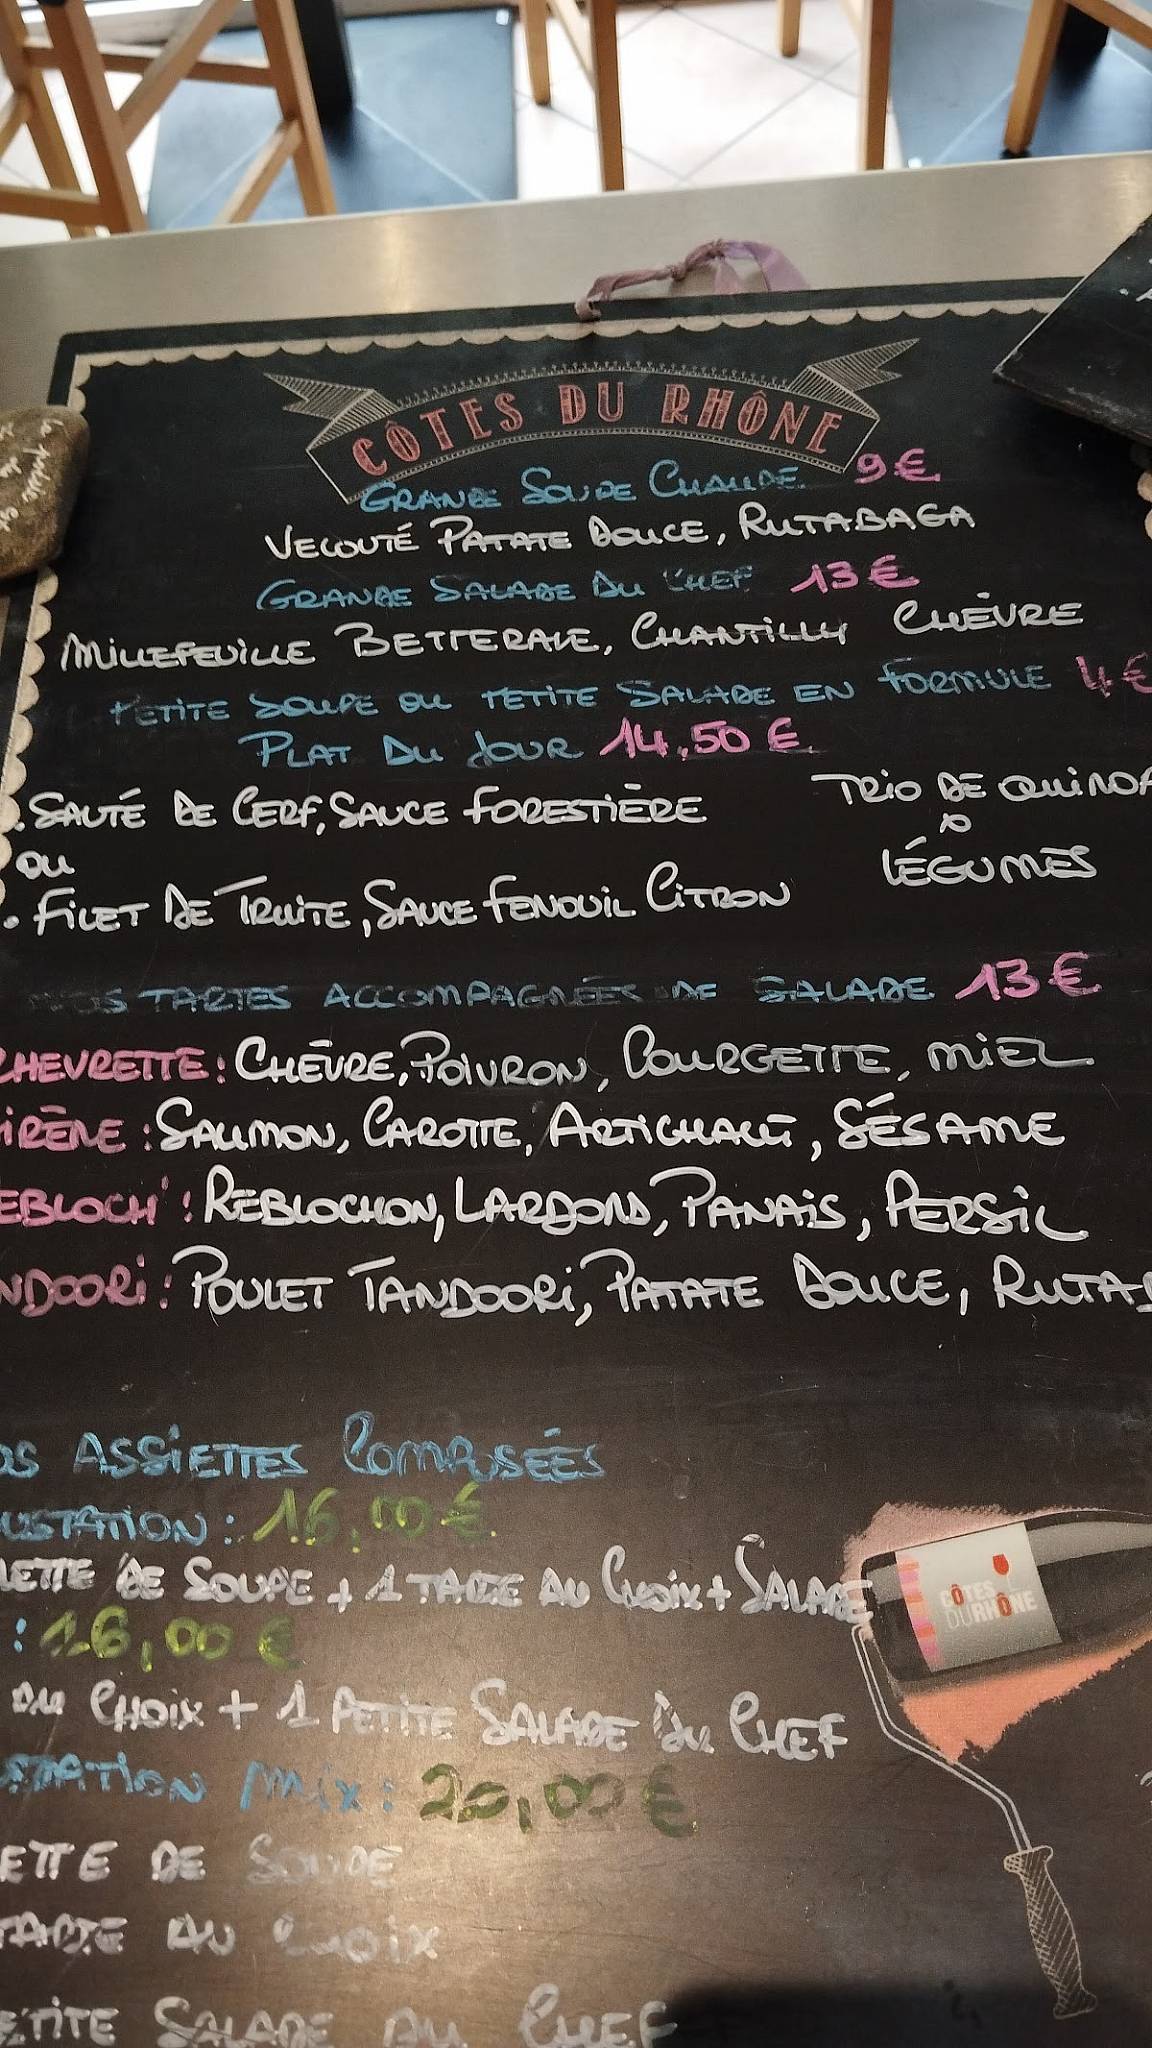 CÔTES DU RHÔNE
GRANDE SOUPE CHAUDE 9€
VELOUTÉ PATATE DOUCE, RUTABAGA
GRANDE SALADE DU CHEF 13€
MILLEFEUILLE BETTERAVE, CHANTILLY CHÈVRE
PETITE SOUPE OU PETITE SALADE EN FORMULE 4€
PLAT DU JOUR 14.50€
. SAUTÉ DE CERF, SAUCE FORESTIÈRE
OU
. FILET DE TRUITE, SAUCE FENOUIL CITRON
TRIO DE QUINOA
&
LÉGUMES
NOS TARTES ACCOMPAGNÉES DE SALADE 13€
CHEVRETTE : CHÈVRE, POIVRON, COURGETTE, MIEL
IRÈNE : SAUMON, CAROTTE, ARTICHAUT, SÉSAME
EBLOCH' : REBLOCHON, LARDONS, PANAIS, PERSIL
NDOORI : POULET TANDOORI, PATATE DOUCE, RUTAB
OS ASSIETTES COMPOSÉES
USTATION : 16,00€
LETTE DE SOUPE + 1 TARTE AU CHOIX + SALADE
: 16,00€
AU CHOIX + 1 PETITE SALADE DU CHEF
STATION MIX : 20,00€
ETTE DE SOUPE
TARTE AU CHOIX
ETITE SALADE DU CHEF
CÔTES
DU RHÔNE